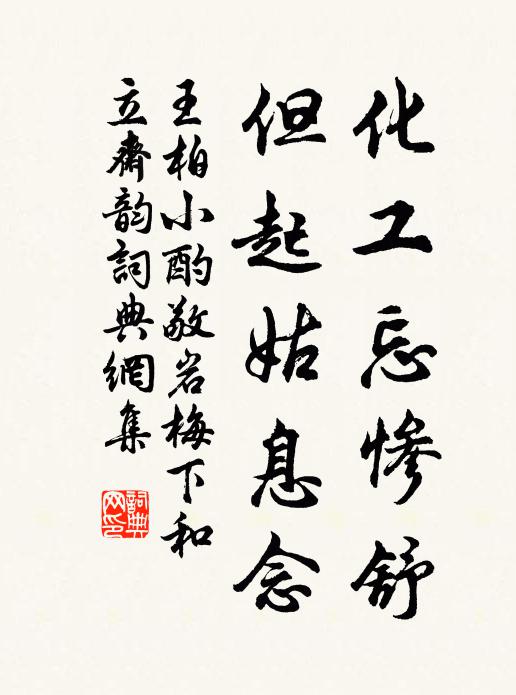 化工忘惨舒
但起姑息念
王柏小酌敬岩梅下和
立齋韵詞典網集
詞典
网印